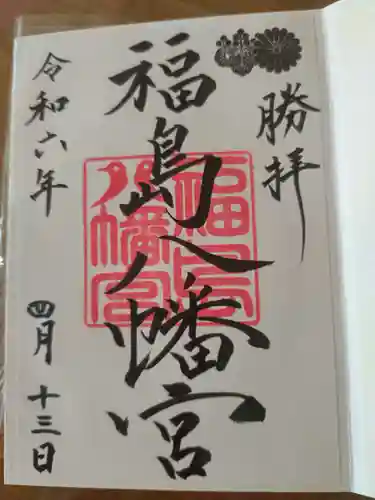 勝拝
福島八幡宮
福島八幡宮
令和六年
四月十三日